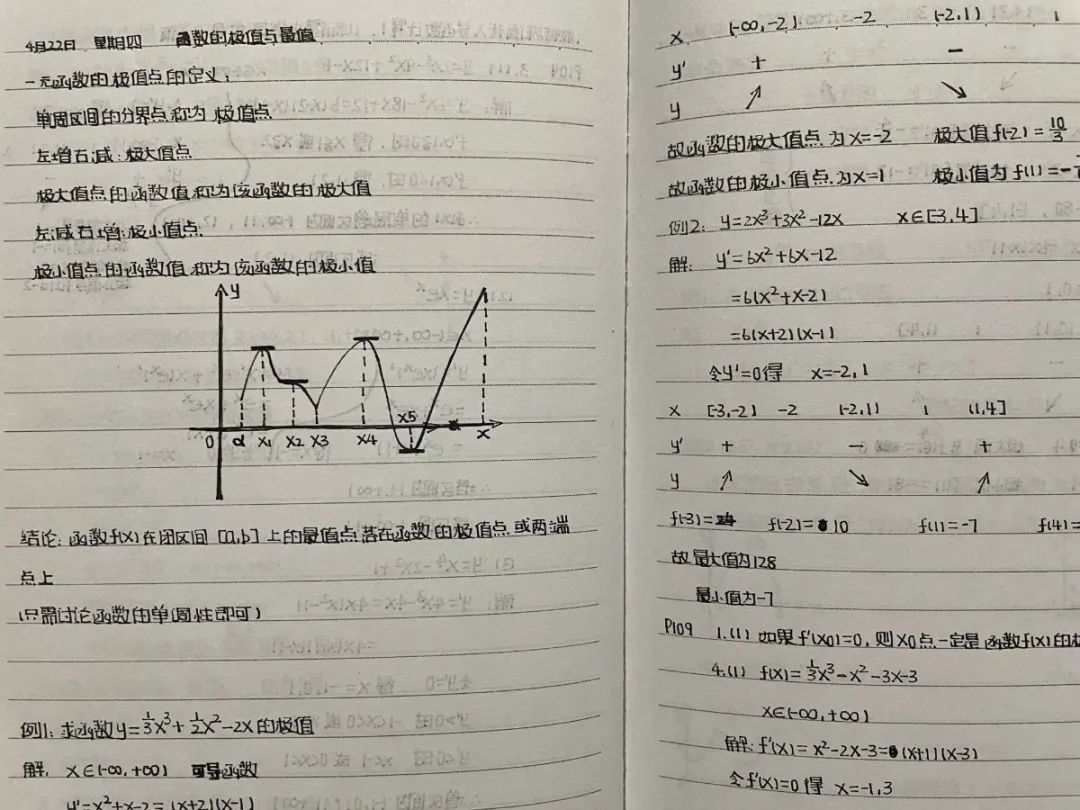 4月22日 星期四 函数的极值与最值
一元函数的极值点的定义:
单调区间的分界点称为极值点
左增右减:极大值点
极大值点的函数值称为该函数的极大值
左减右增:极小值点
极小值点的函数值称为该函数的极小值
y
0 a x₁ x₂ x₃ x₄ x₅ x
结论:函数f(x)在闭区间[a,b]上的最值点落在函数的极值点或两端
点上
(只需讨论函数的单调性即可)
例1:求函数y=⅓x³+½x²-2x的极值
解: x∈(-∞,+∞) 可导函数
y'=x²+x-2=(x+2)(x-1)
x (-∞,-2) -2 (-2,1) 1
y' + -
y ↗ ↘
故函数的极大值点为x=-2 极大值f(-2)=10/3
故函数的极小值点为x=1 极小值为f(1)=-
例2: y=2x³+3x²-12x x∈[-3,4]
解: y'=6x²+6x-12
=6(x²+x-2)
=6(x+2)(x-1)
令y'=0得 x=-2,1
x [-3,-2) -2 (-2,1) 1 (1,4]
y' + - +
y ↗ ↘ ↗
f(-3)= f(-2)=10 f(1)=-7 f(4)=
故最大值为128
最小值为-7
P109 1.(1) 如果f'(x0)=0,则x0点一定是函数f(x)的
4.(1) f(x)=⅓x³-x²-3x-3
x∈(-∞,+∞)
解:f'(x)=x²-2x-3=(x+1)(x-3)
令f'(x)=0得 x=-1,3